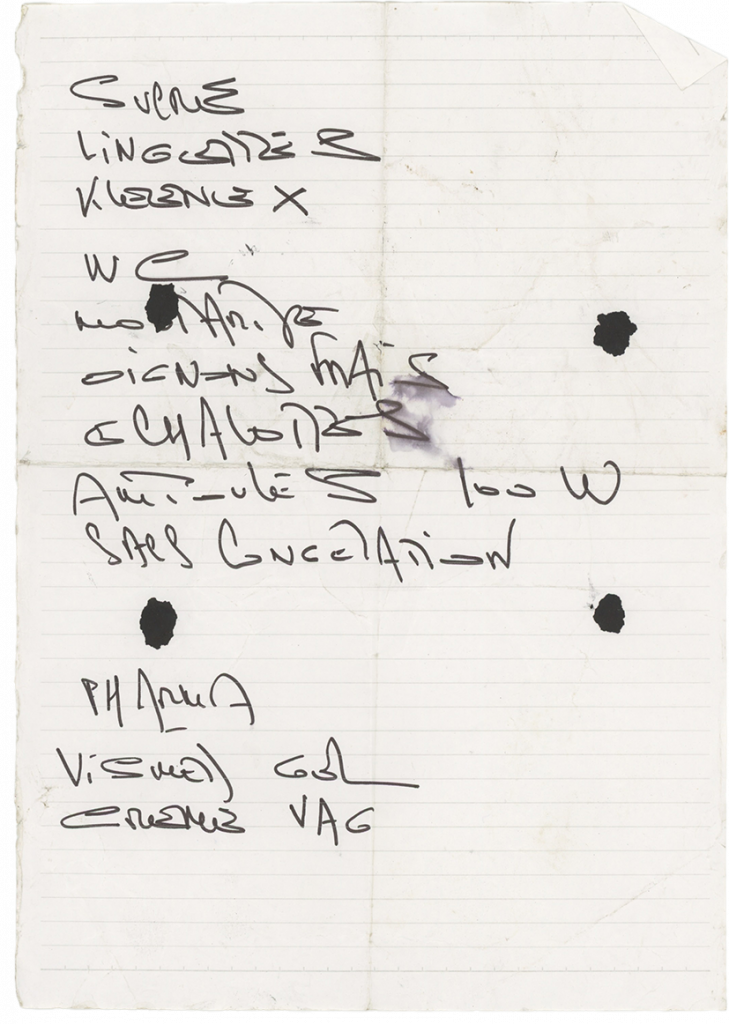 SUCRE
LINGETTES
KLEENEX
WC
MOUTARDE
OIGNONS FRAIS
ECHALOTTES
AMPOULES 100 W
SACS CONGELATION
PHARMA
VISMED GEL
CREME VAG